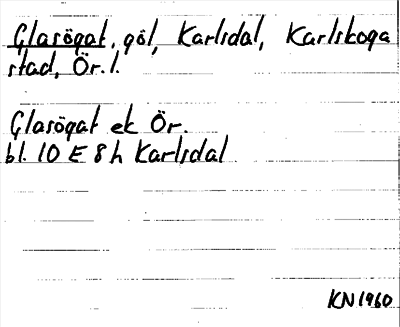 Glasögat, göl, Karlsdal, Karlskoga
stad, Ör. l.
Glasögat ek Ör.
bl. 10 E 8 h Karlsdal
KN 1960